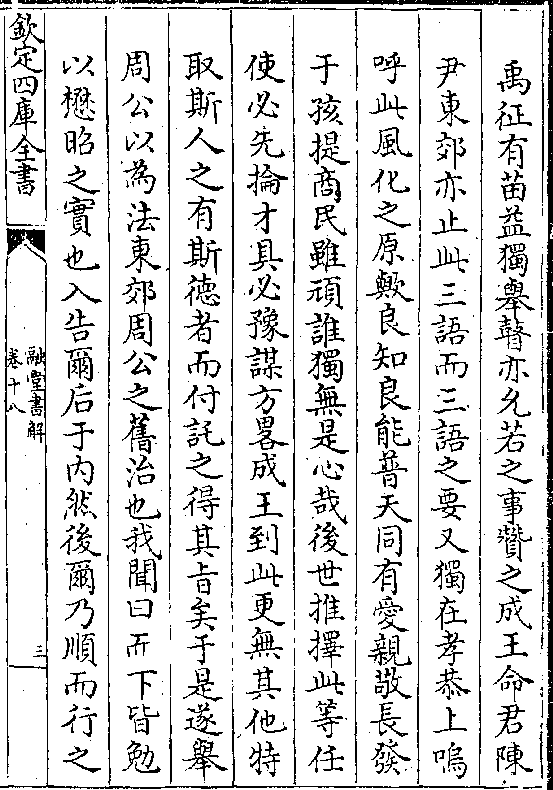 禹征有苗益獨舉瞽亦允若之事贊之成王命君陳
尹東郊亦止此三語而三語之要又獨在孝恭上嗚
呼此風化之原歟良知良能普天同有愛親敬長發
于孩提商民雖頑誰獨無是心哉後世推擇此等任
使必先掄才具必豫謀方畧成王到此更無其他特
取斯人之有斯德者而付託之得其旨矣于是遂舉
周公以為法東郊周公之舊治也我聞曰而下皆勉
以懋昭之實也入告爾后于内然後爾乃順而行之
欽定四庫全書
融堂書解
卷十八
三